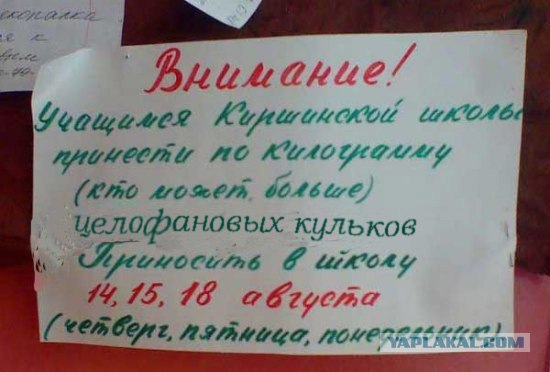 Внимание!
Учащимся Киршинской школы
принести по килограмму
(кто может больше)
целофановых кульков
Приносить в школу
14, 15, 18 августа
(четверг, пятница, понедельник)
YAPLAKAL.COM